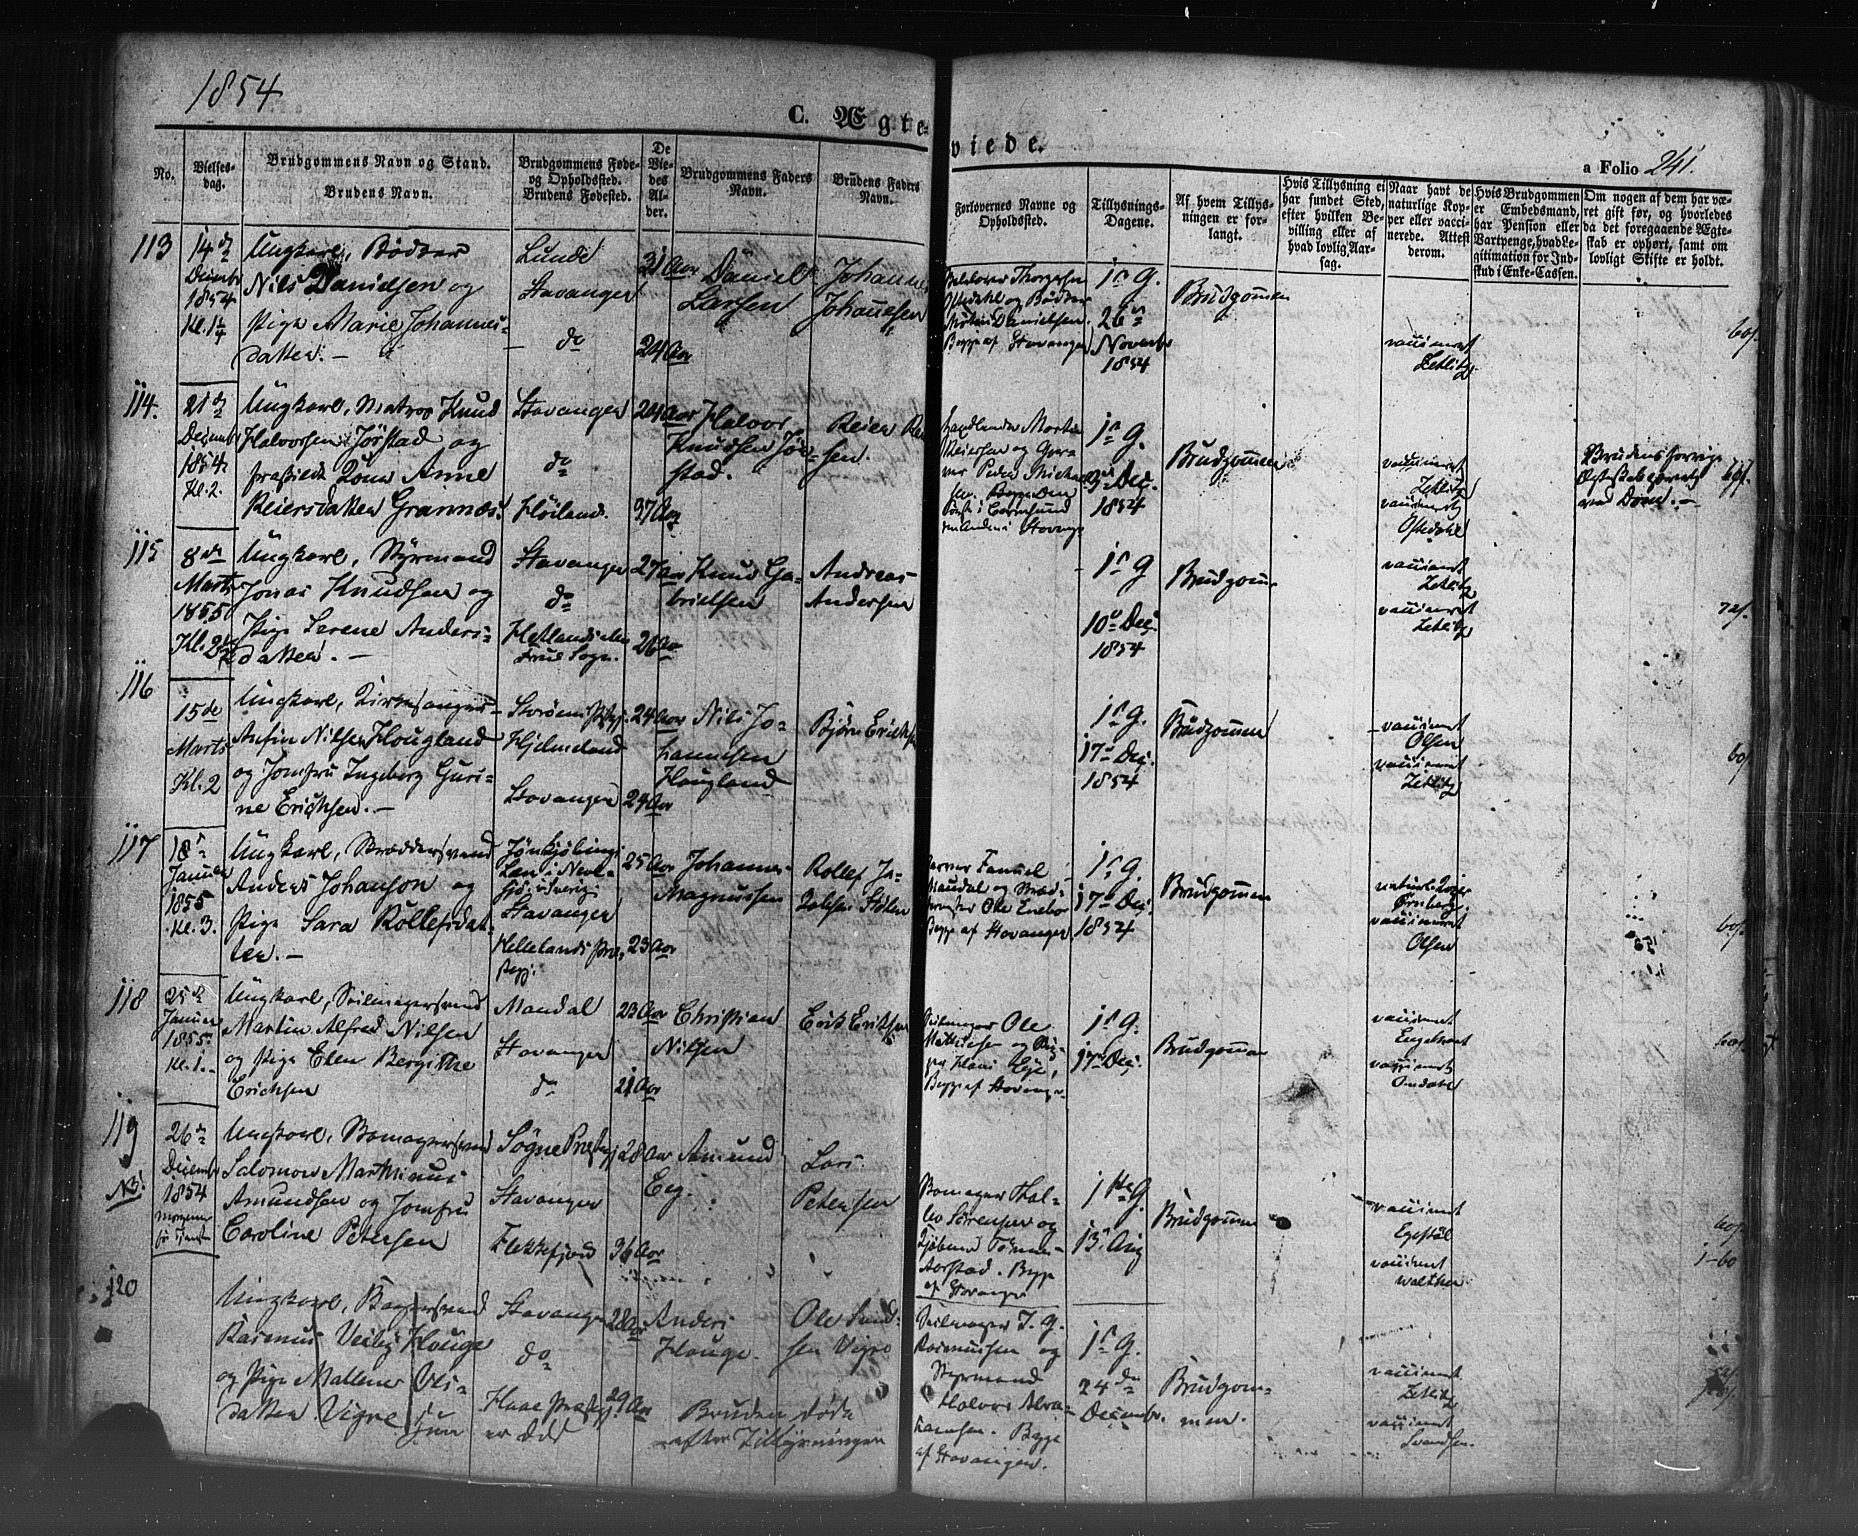 1854
C. Ægte-
viede.
a Folio 241.
No.
Vielses-
dag.
Brudgommens Navn og Stand.
Brudens Navn.
Brudgommens Føde-
og Opholdssted.
Brudens Fødested.
De
Vie-
des
Al-
der.
Brudgommens Faders
Navn.
Brudens Faders
Navn.
Forlovernes Navne og
Opholdssted.
Tillysnings-
Dagene.
Af hvem Tillys-
ningen er for-
langt.
Hvis Tillysning ei
har fundet Sted,
efter hvilken Be-
villing eller af
hvad lovlig Aar-
sag.
Naar havt de
naturlige Kop-
per eller vacci-
nerede. Attest
derom.
Hvis Brudgommen
er Embedsmand,
har Pension eller
Vartpenge, hvad Le-
gitimation for Ind-
skud i Enke-Cassen.
Om nogen af dem har væ-
ret gift før, og hvorledes
da det foregaaende Ægte-
skab er ophørt, samt om
lovligt Skifte er holdt.
113
14de
Decembr
1854
Kl. 1¼
Ungkarl, Bødker
Nils Danielsen og
Pige Marie Johannes-
datter. —
Lunde
Stavanger
do
31 Aar
24 Aar
Daniel
Larsen
Johannes
Johannesen
Thorgersen
Ostedahl og Bødker
Danielsen.
Begge af Stavanger
1ste G.
26de
Novembr
1854
Brudgommen
vaccineret
Zetlitz
60/.
114.
21de
Decembr
1854
Kl. 2.
Ungkarl, Matros Knud
Halvorsen Jørstad og
fraskilte Kone Anne
Reiersdatter Grannæs.
Stavanger
do
Høiland.
24 Aar
37 Aar
Halvor
Knudsen Jør-
stad.
Reier Rei-
sen.
Handlende Morten
Reiersen og
Peder Mickel-
sen. Den
første i Egersund
den Anden i Stavanger
1ste G.
3die Dec.
1854
Brudgommen
vaccineret
Zetlitz
vaccineret
Ostedahl
Brudens forrige
Ægteskab ophævet
ved Dom. —
115
8de
Marts
1855
Kl. 2½
Ungkarl, Styrmand
Jonas Knudsen og
Pige Serene Anders-
datter. —
Stavanger
do
Hetlands
Frue Sogn.
27 Aar
26 Aar
Knud Ga-
brielsen
Andreas
Andersen
1ste G
10de Dec.
1854
Brudgomm.
vaccineret
Zetlitz
vaccineret
Zetlitz
72/.
116
15de
Marts
Kl. 2
Ungkarl, Kirkesanger
Anfin Nilsen Hougland
og Jomfru Ingeborg Guri-
ne Erichsen. —
Hjelmeland
Stavanger
24 Aar
24 Aar
Nils Jo-
hannesen
Hougland
Bjørn Erichsen
1ste G.
17de Dec.
1854
Brudgommen
vaccineret
Olsen
vaccineret
Zetlitz
60/.
117
18de
Januar
1855
Kl. 3.
Ungkarl, Skræddersvend
Anders Johanson og
Pige Sara Rollefsdat-
ter. —
Jønkjøbings
Len i
Sverig.
Stavanger
Hellelands Præ-
stegj.
25 Aar
23 Aar
Johannes
Magnussen
Rollef Ja-
kobsen
Fanuel
Mandal og Skræd-
Ole
Begge af Stavanger
1ste G.
17de Dec.
1854
Brudgommen
naturl. Kopper
vaccineret
Olsen
60/.
118
25de
Januar
1855.
Kl. 1. -
Ungkarl, Seilmagersvend
Martin Alfred Nilsen
og Pige Elen Bergitthe
Erichsen
Mandal
Stavanger
do
23 Aar
21 Aar
Christian
Nilsen
Erik Eriksen
Seilmager Ole
og
Begge af Stavanger
1ste G.
17de Dec.
Brudgommen
vaccineret
Engelhart
vaccineret
60/.
119
26de
December
1854
Ungkarl, Blomagersvend
Salomon Marthinus
Amundsen og Jomfru
Caroline Petersen
Søgne Præstegj
Stavanger
Flekkefjord
28 Aar
36 Aar
Amund
Eeg.
Lars
Petersen
Blomager
Sørensen og
Kjøbmd
Aarstad. Begge
af Stavanger
1ste G.
13de Aug
Brudgommen
vaccineret
vaccineret
Walther
60/.
1-60
120
Ungkarl, Bagersvend
Rasmus Houge
og Pige Mallene Ols-
datter Vigre
Stavanger
do
Haae Præstegj.
er død
28 Aar
29 Aar
Anders
Houge
Ole Svend-
sen Vigre
Bruden døde
efter Tillysningen
Seilmager T. G.
Rasmussen og
Styrmand
Halvor Abra-
hamsen. Begge
af Stavanger.
1ste G.
24de
Decembr.
Brudgom-
men.
vaccineret
Zetlitz
vaccineret
Svendsen.